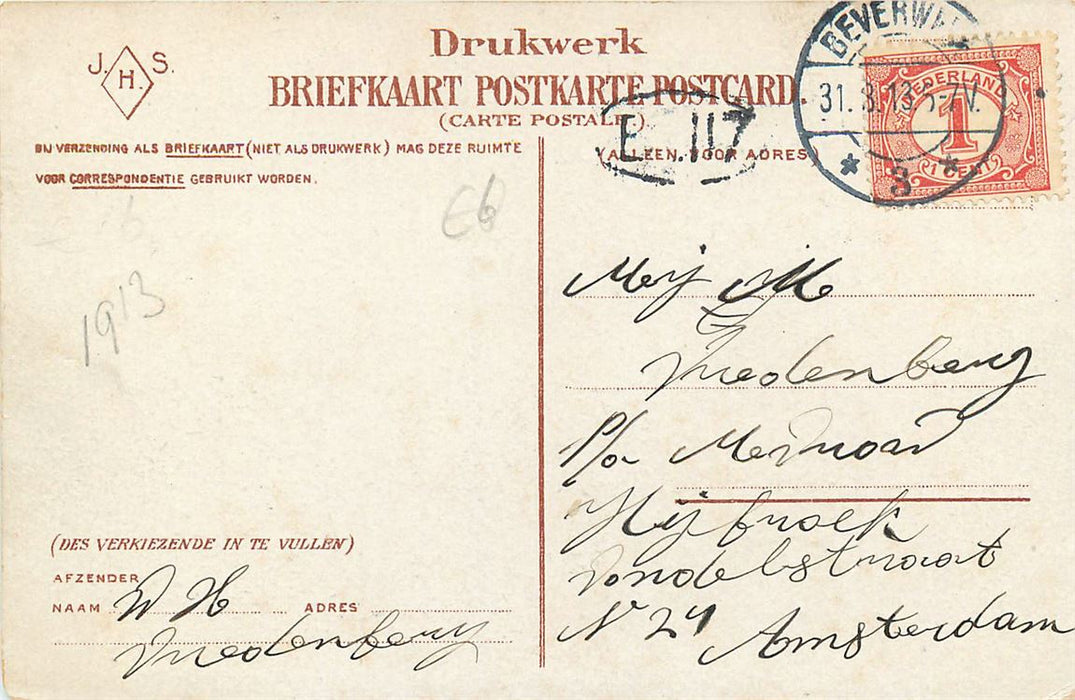 J. H. S.
Drukwerk
BRIEFKAART POSTKARTE POSTCARD.
(CARTE POSTALE.)
BIJ VERZENDING ALS BRIEFKAART (NIET ALS DRUKWERK) MAG DEZE RUIMTE
VOOR CORRESPONDENTIE GEBRUIKT WORDEN.
(ALLEEN VOOR ADRES
E 117
BEVERWIJK
31.8.13 6-7V.
* 8 *
NEDERLAND
1
1 CENT
E6
1913
Mej Me
Vredenberg
P/a Mevr
Vondelstraat
No 24 Amsterdam
(DES VERKIEZENDE IN TE VULLEN)
AFZENDER
NAAM W H ADRES
Vredenberg